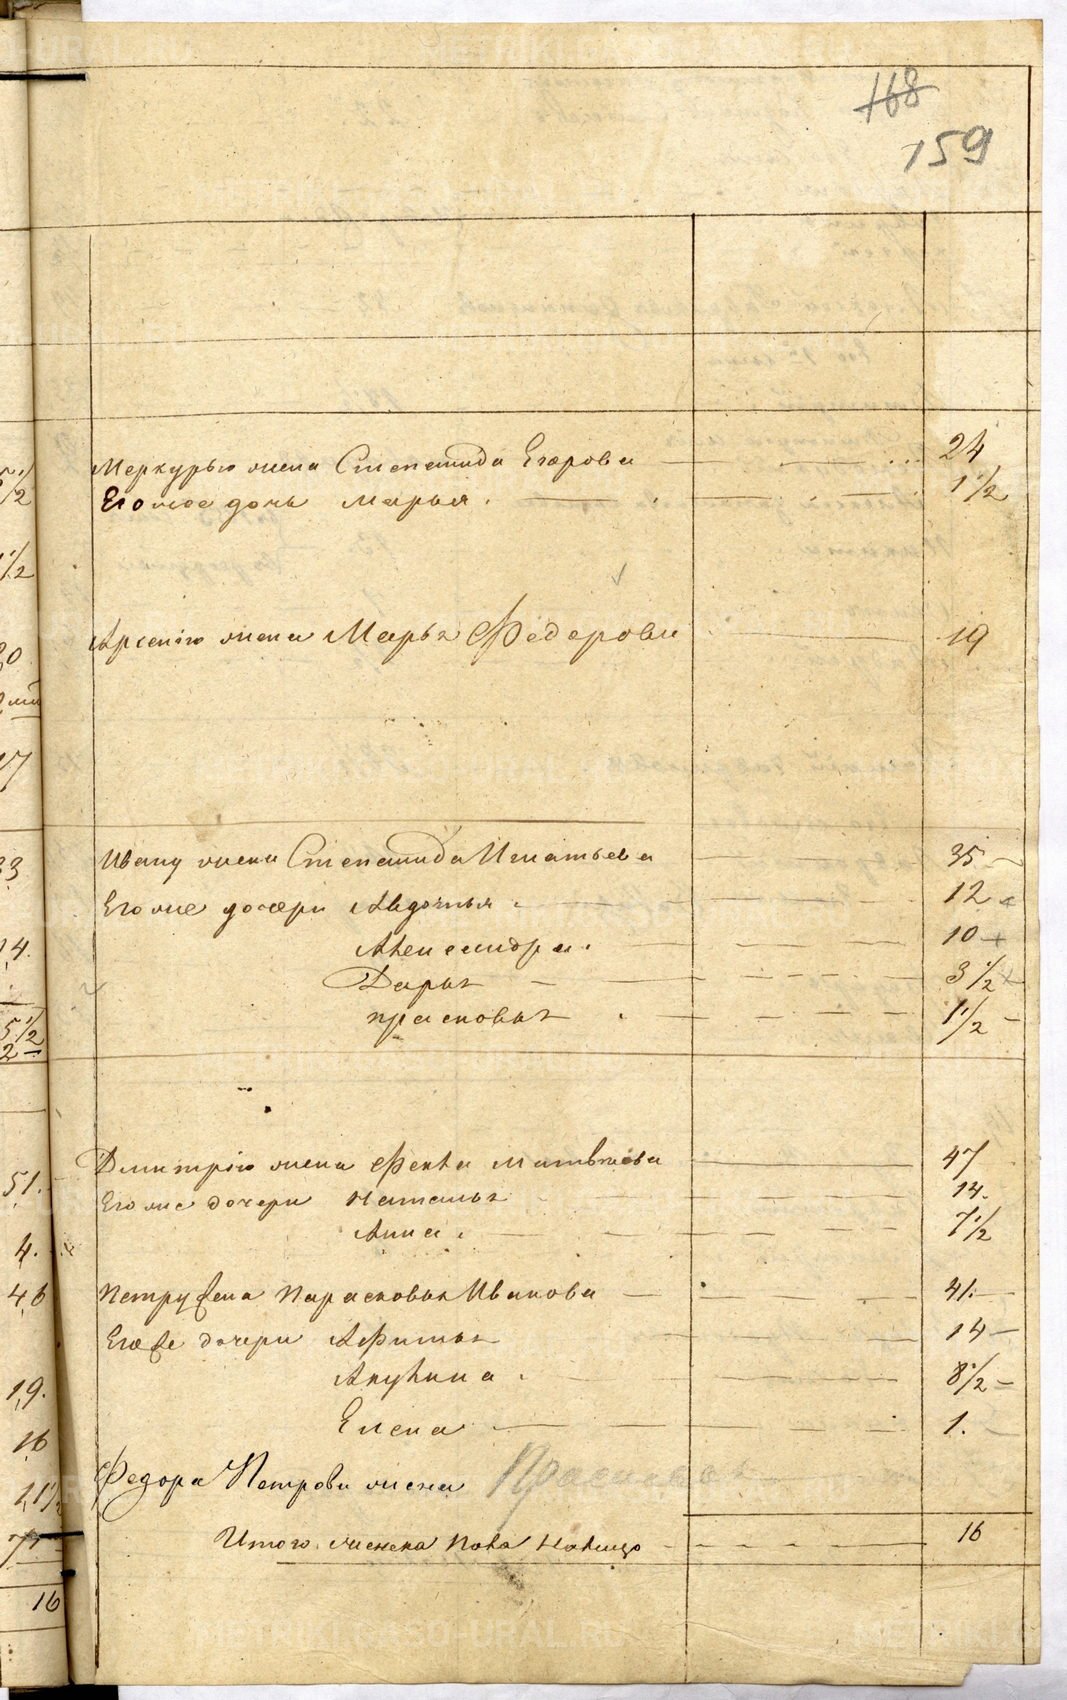 168
159
Меркурью жена Степанида Егорова 24
Его же дочь Марья 1 1/2
Арсенію жена Марья Федорова 19
Ивану жена Степанида Игнатьева 35
Его же дочери Авдотья 12
Александра 10
Дарья 3 1/2
прасковья 1 1/2
Дмитрію жена Фекла Матвѣева 47
Его же дочери Наталья 14.
Анна 7 1/2
Петру жена Парасковья Иванова 41.
Его же дочери Афимья 14
Акулина 8 1/2
Елена 1.
Федора Петрова жена Прасковья
Итого женска пола налицо 16
5 1/2
1/2
17
33
14.
5 1/2
2
51.
4.
46
19.
16
16